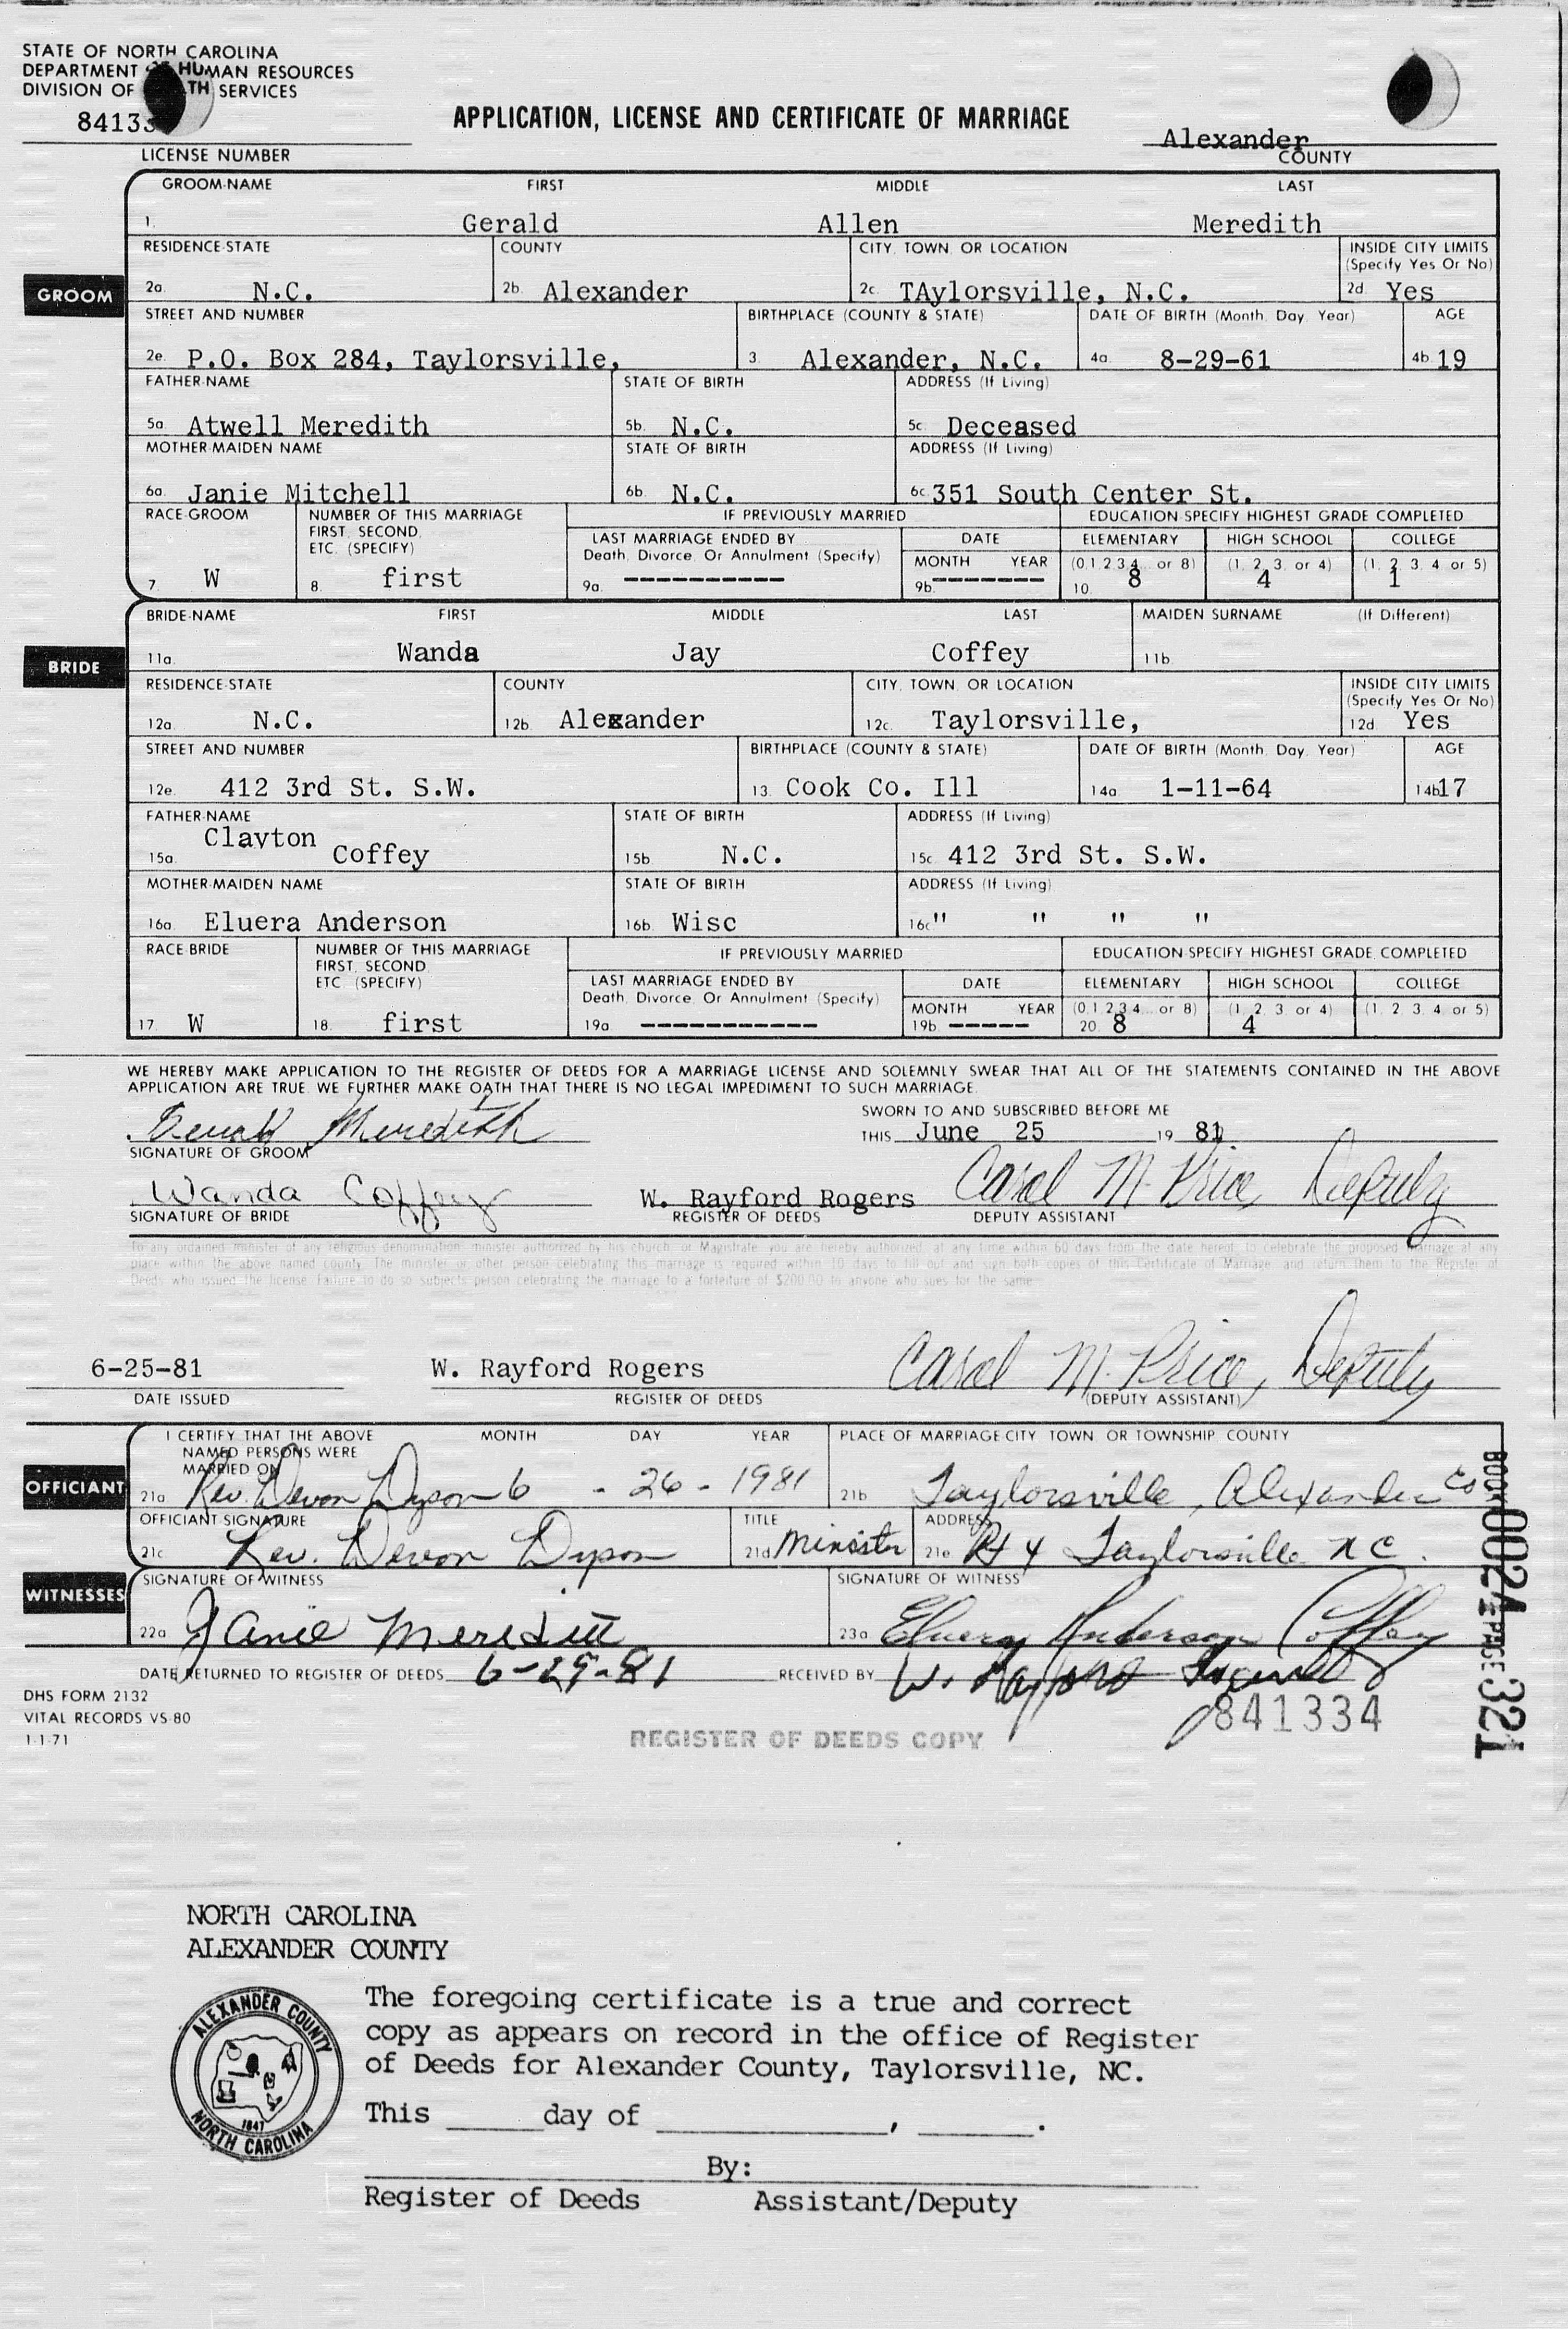 STATE OF NORTH CAROLINA
DEPARTMENT HUMAN RESOURCES
DIVISION OF SERVICES
8413
LICENSE NUMBER
APPLICATION, LICENSE AND CERTIFICATE OF MARRIAGE
Alexander
COUNTY
GROOM-NAME FIRST MIDDLE LAST
1. Gerald Allen Meredith
GROOM
RESIDENCE-STATE COUNTY CITY, TOWN, OR LOCATION INSIDE CITY LIMITS (Specify Yes Or No)
2a. N.C. 2b. Alexander 2c. TAylorsville, N.C. 2d. Yes
STREET AND NUMBER BIRTHPLACE (COUNTY & STATE) DATE OF BIRTH (Month, Day, Year) AGE
2e. P.O. Box 284, Taylorsville, 3. Alexander, N.C. 4a. 8-29-61 4b. 19
FATHER-NAME STATE OF BIRTH ADDRESS (If Living)
5a. Atwell Meredith 5b. N.C. 5c. Deceased
MOTHER-MAIDEN NAME STATE OF BIRTH ADDRESS (If Living)
6a. Janie Mitchell 6b. N.C. 6c. 351 South Center St.
RACE-GROOM NUMBER OF THIS MARRIAGE FIRST, SECOND, ETC. (SPECIFY) IF PREVIOUSLY MARRIED EDUCATION-SPECIFY HIGHEST GRADE COMPLETED
LAST MARRIAGE ENDED BY Death, Divorce, Or Annulment (Specify) DATE ELEMENTARY HIGH SCHOOL COLLEGE
MONTH YEAR (0,1,2,3,4... or 8) (1, 2, 3, or 4) (1, 2, 3, 4, or 5)
7. W 8. first 9a. ---------- 9b. ------- 10. 8 4 1
BRIDE-NAME FIRST MIDDLE LAST MAIDEN SURNAME (If Different)
11a. Wanda Jay Coffey 11b.
BRIDE
RESIDENCE-STATE COUNTY CITY, TOWN, OR LOCATION INSIDE CITY LIMITS (Specify Yes Or No)
12a. N.C. 12b. Alexander 12c. Taylorsville, 12d. Yes
STREET AND NUMBER BIRTHPLACE (COUNTY & STATE) DATE OF BIRTH (Month, Day, Year) AGE
12e. 412 3rd St. S.W. 13. Cook Co. Ill 14a. 1-11-64 14b. 17
FATHER-NAME STATE OF BIRTH ADDRESS (If Living)
15a. Clayton Coffey 15b. N.C. 15c. 412 3rd St. S.W.
MOTHER-MAIDEN NAME STATE OF BIRTH ADDRESS (If Living)
16a. Eluera Anderson 16b. Wisc 16c. " " " "
RACE-BRIDE NUMBER OF THIS MARRIAGE FIRST, SECOND, ETC. (SPECIFY) IF PREVIOUSLY MARRIED EDUCATION-SPECIFY HIGHEST GRADE COMPLETED
LAST MARRIAGE ENDED BY Death, Divorce, Or Annulment (Specify) DATE ELEMENTARY HIGH SCHOOL COLLEGE
MONTH YEAR (0,1,2,3,4... or 8) (1, 2, 3, or 4) (1, 2, 3, 4, or 5)
17. W 18. first 19a. ----------- 19b. ----- 20. 8 4
WE HEREBY MAKE APPLICATION TO THE REGISTER OF DEEDS FOR A MARRIAGE LICENSE AND SOLEMNLY SWEAR THAT ALL OF THE STATEMENTS CONTAINED IN THE ABOVE
APPLICATION ARE TRUE. WE FURTHER MAKE OATH THAT THERE IS NO LEGAL IMPEDIMENT TO SUCH MARRIAGE.
Gerald Meredith
SIGNATURE OF GROOM
SWORN TO AND SUBSCRIBED BEFORE ME
THIS June 25 19 81.
Wanda Coffey
SIGNATURE OF BRIDE
W. Rayford Rogers Carol M. Price, Deputy
REGISTER OF DEEDS DEPUTY ASSISTANT
To any ordained minister of any religious denomination, minister authorized by his church, or Magistrate, you are hereby authorized, at any time within 60 days from the date hereof, to celebrate the proposed marriage at any
place within the above named county. The minister or other person celebrating this marriage is required within 10 days to fill out and sign both copies of this Certificate of Marriage, and return them to the Register of
Deeds who issued the license. Failure to do so subjects person celebrating the marriage to a forfeiture of $200.00 to anyone who sues for the same.
6-25-81 W. Rayford Rogers Carol M. Price, Deputy
DATE ISSUED REGISTER OF DEEDS (DEPUTY ASSISTANT)
OFFICIANT
I CERTIFY THAT THE ABOVE NAMED PERSONS WERE MARRIED ON MONTH DAY YEAR PLACE OF MARRIAGE-CITY, TOWN, OR TOWNSHIP, COUNTY
21a. Rev. Devon Dyson 6 - 26 - 1981 21b. Taylorsville, Alexander Co
OFFICIANT-SIGNATURE TITLE ADDRESS
21c. Rev. Devon Dyson 21d. Minister 21e. Rt 4 Taylorsville N C.
WITNESSES
SIGNATURE OF WITNESS SIGNATURE OF WITNESS
22a. Janie Meredith 23a. Eluera Anderson Coffey
DATE RETURNED TO REGISTER OF DEEDS 6-29-81 RECEIVED BY W. Rayford Rogers
BOOK 0024 PAGE 321
DHS FORM 2132
VITAL RECORDS VS-80
1-1-71
841334
REGISTER OF DEEDS COPY
NORTH CAROLINA
ALEXANDER COUNTY
ALEXANDER COUNTY
1847
NORTH CAROLINA
The foregoing certificate is a true and correct
copy as appears on record in the office of Register
of Deeds for Alexander County, Taylorsville, NC.
This day of , .
By:
Register of Deeds Assistant/Deputy